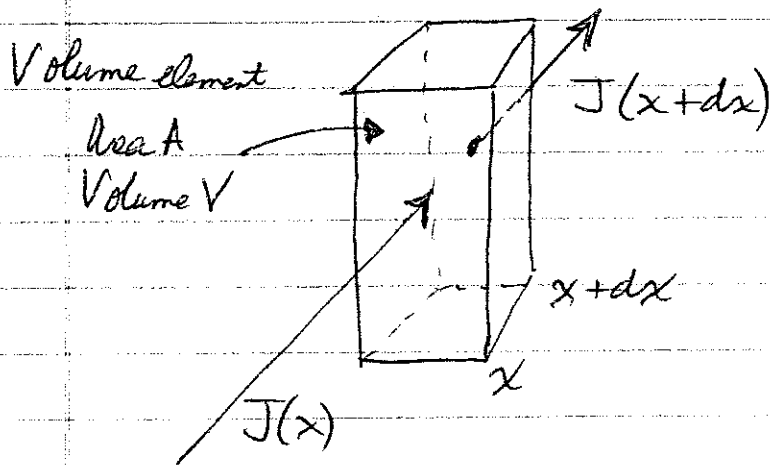 Volume element
Area A
Volume V
J(x+dx)
x+dx
x
J(x)